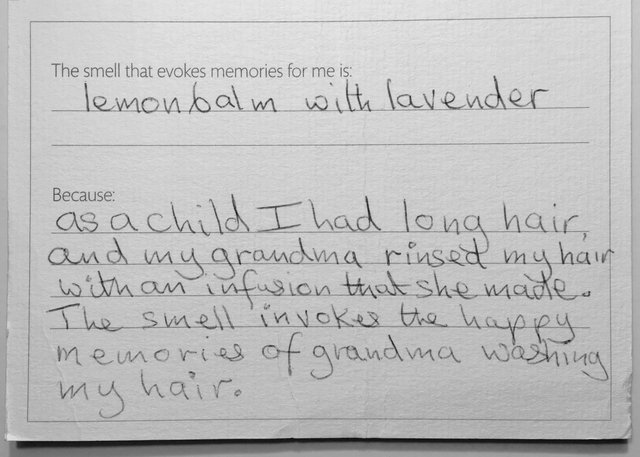 The smell that evokes memories for me is:
lemonbalm with lavender
Because:
as a child I had long hair,
and my grandma rinsed my hair
with an infusion that she made.
The smell invokes the happy
memories of grandma washing
my hair.